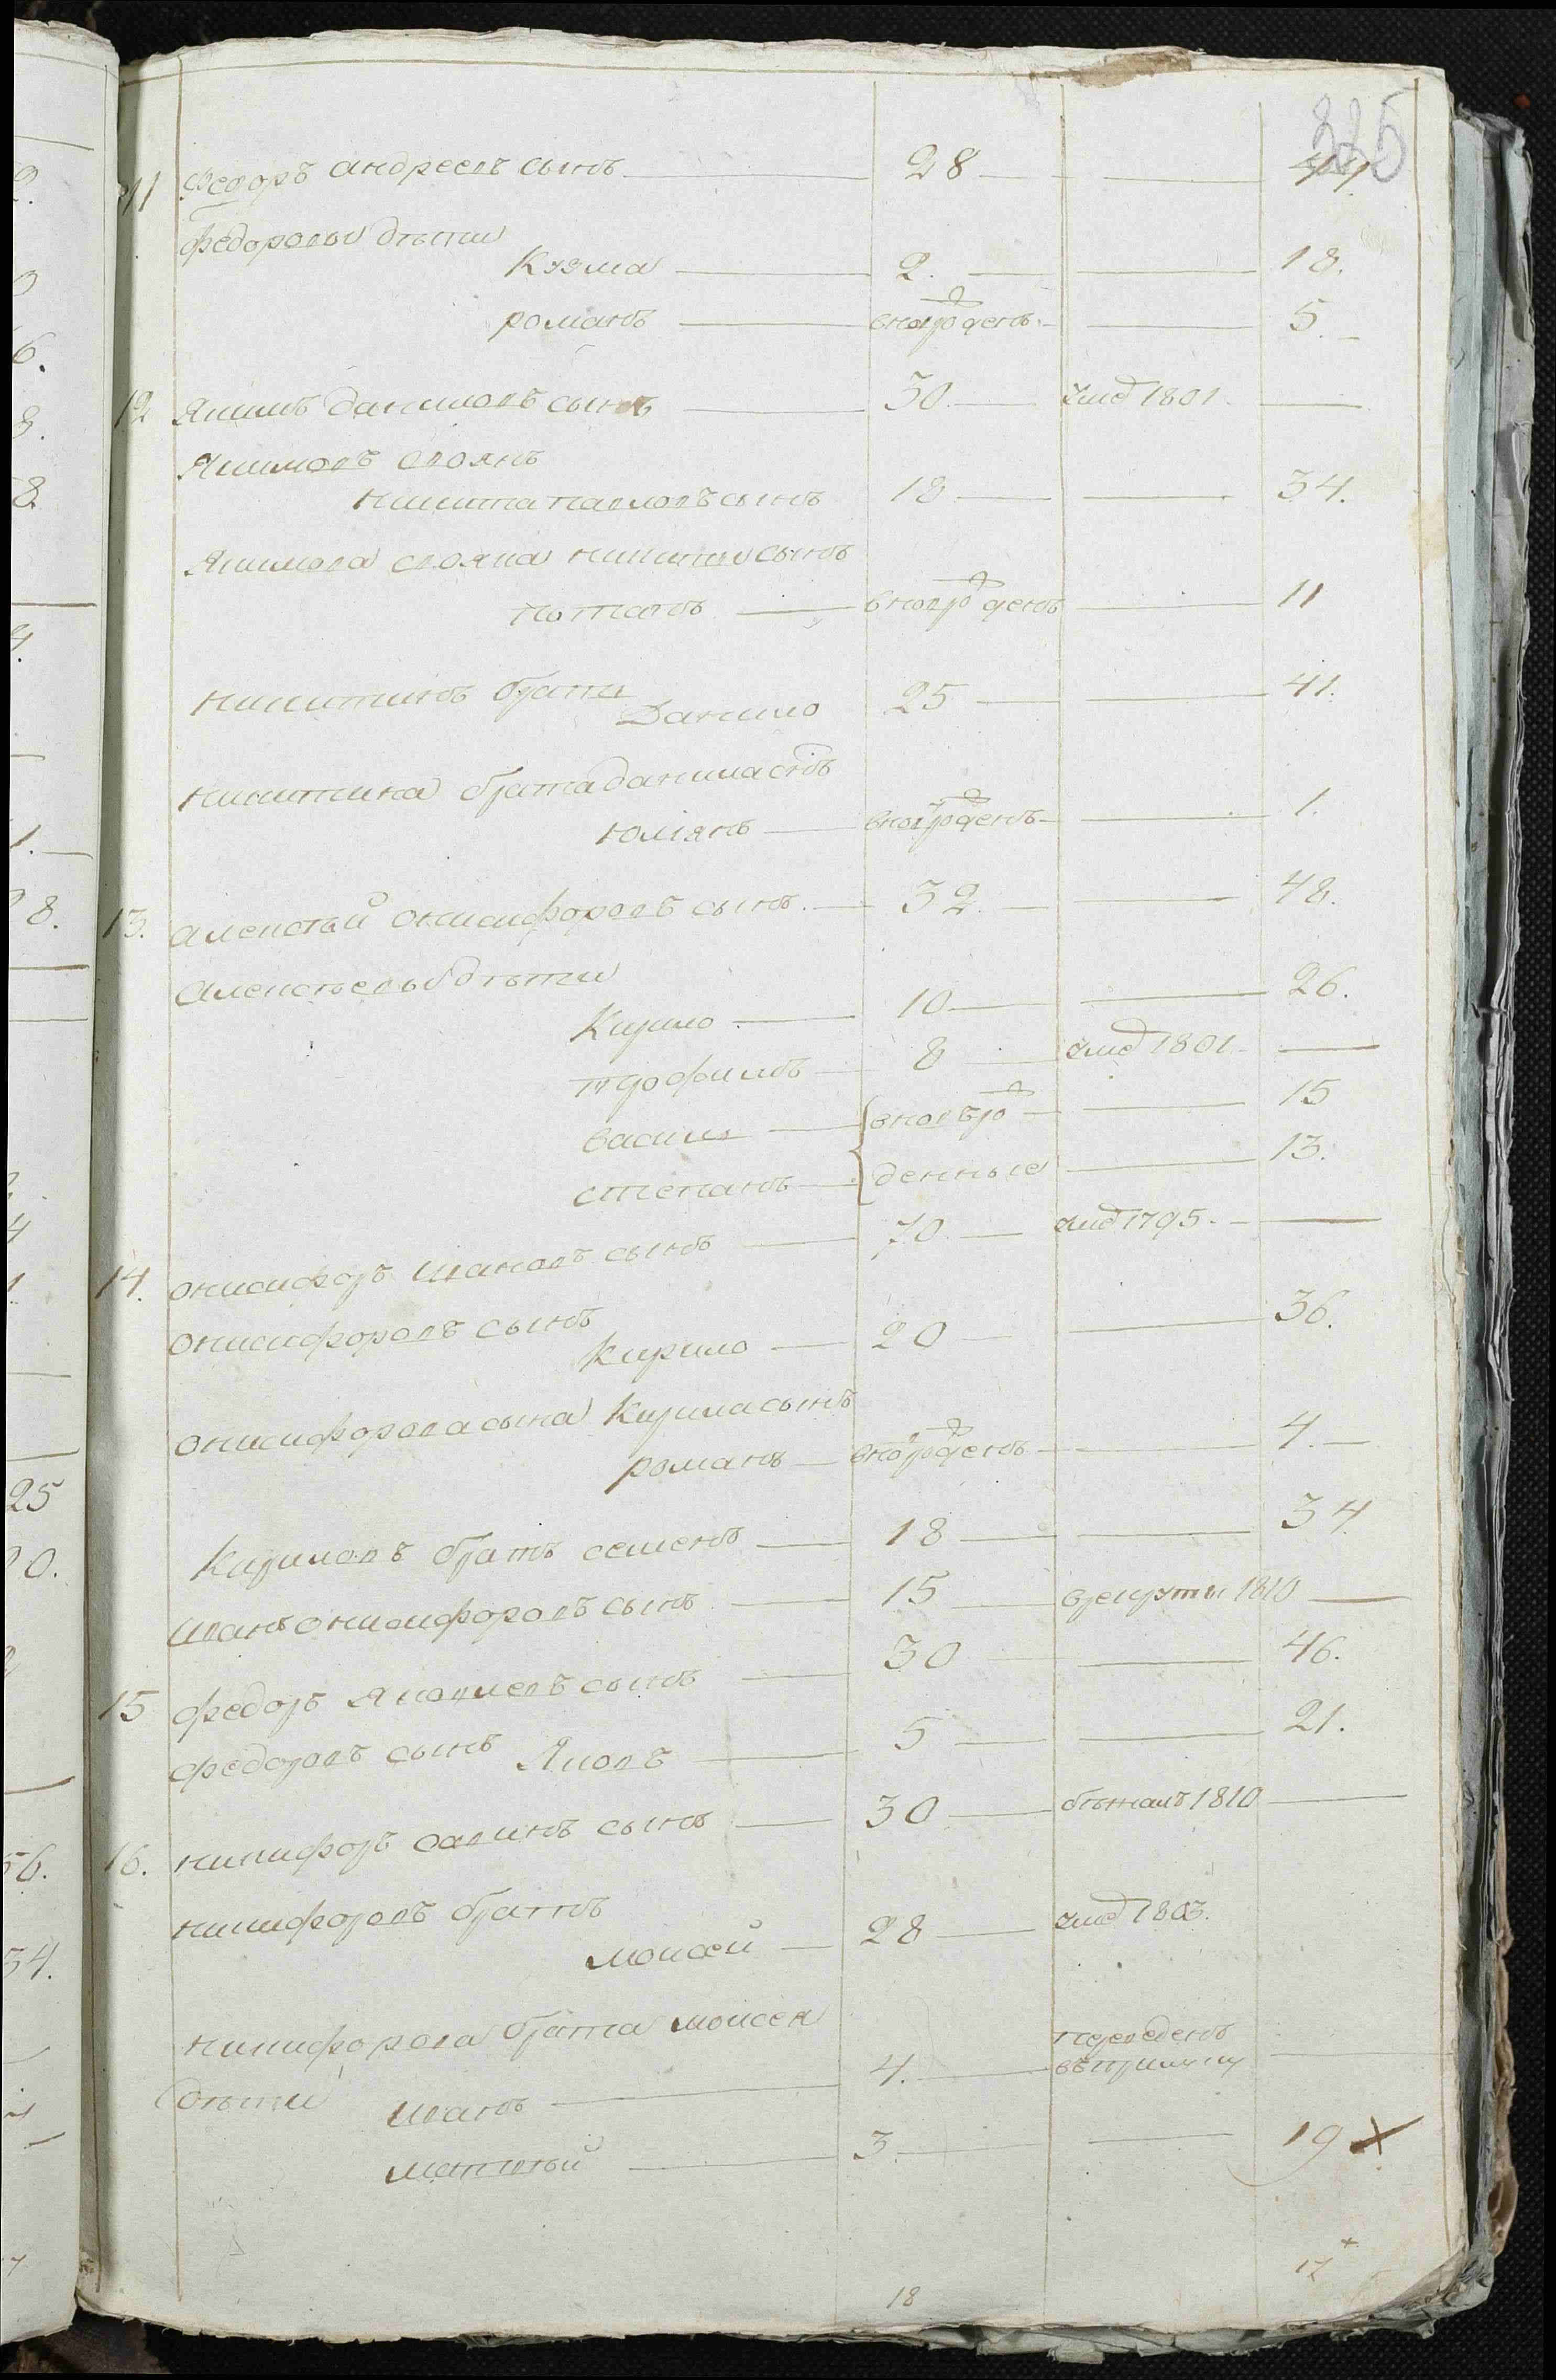 325
11 Федоръ андреевъ сынъ 28 44.
федоровы дѣти
Кузма 2. 18.
романъ вновърожденъ 5.
12 Якимъ даниловъ сынъ 50 умер 1801
Якимовъ своякъ
никита павловъ сынъ 18 34.
Якимова свояка никиты сынъ
потапъ вновърожденъ 11
никитинъ братъ
Данило 25 41.
никитина брата данила снъ
юліянъ вновърожденъ 1.
13. алексѣй онисифоровъ сынъ 32. 48.
алексѣевы дѣти
Кирило 10 26.
трофимъ 8 умер 1801
василей вновърож 15
степанъ денные 13.
14. онисифоръ ивановъ сынъ 70 умер 1795.
онисифоровъ сынъ
кирило 20 36.
онисифорова сына Кирила сынъ
романъ вновърожденъ 4.
Кириловъ братъ семенъ 18 34.
иванъ онисифоровъ сынъ 15 врекруты 1810
15 федоръ Яковлевъ сынъ 30 46.
федоровъ сынъ Яковъ 5 21.
16. никифоръ савинъ сынъ 30 бѣжалъ 1810
никифоровъ братъ
мойсей 28 умер 1803.
никифорова брата моисея
дѣти иванъ 4. переведенъ
въ
матвѣй 3. 19 ×
18 17 ×